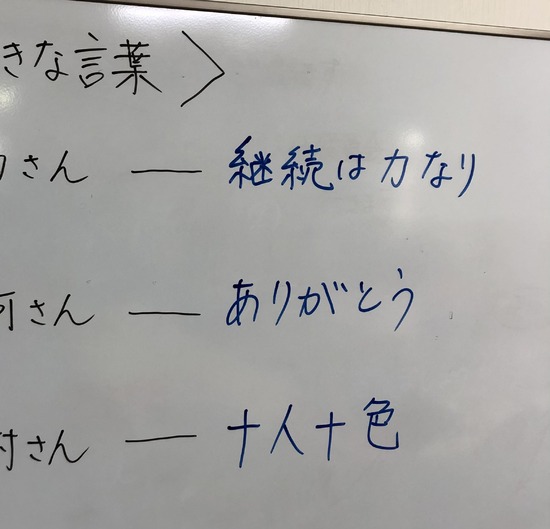 きな言葉＞
さん — 継続は力なり
さん — ありがとう
村さん — 十人十色